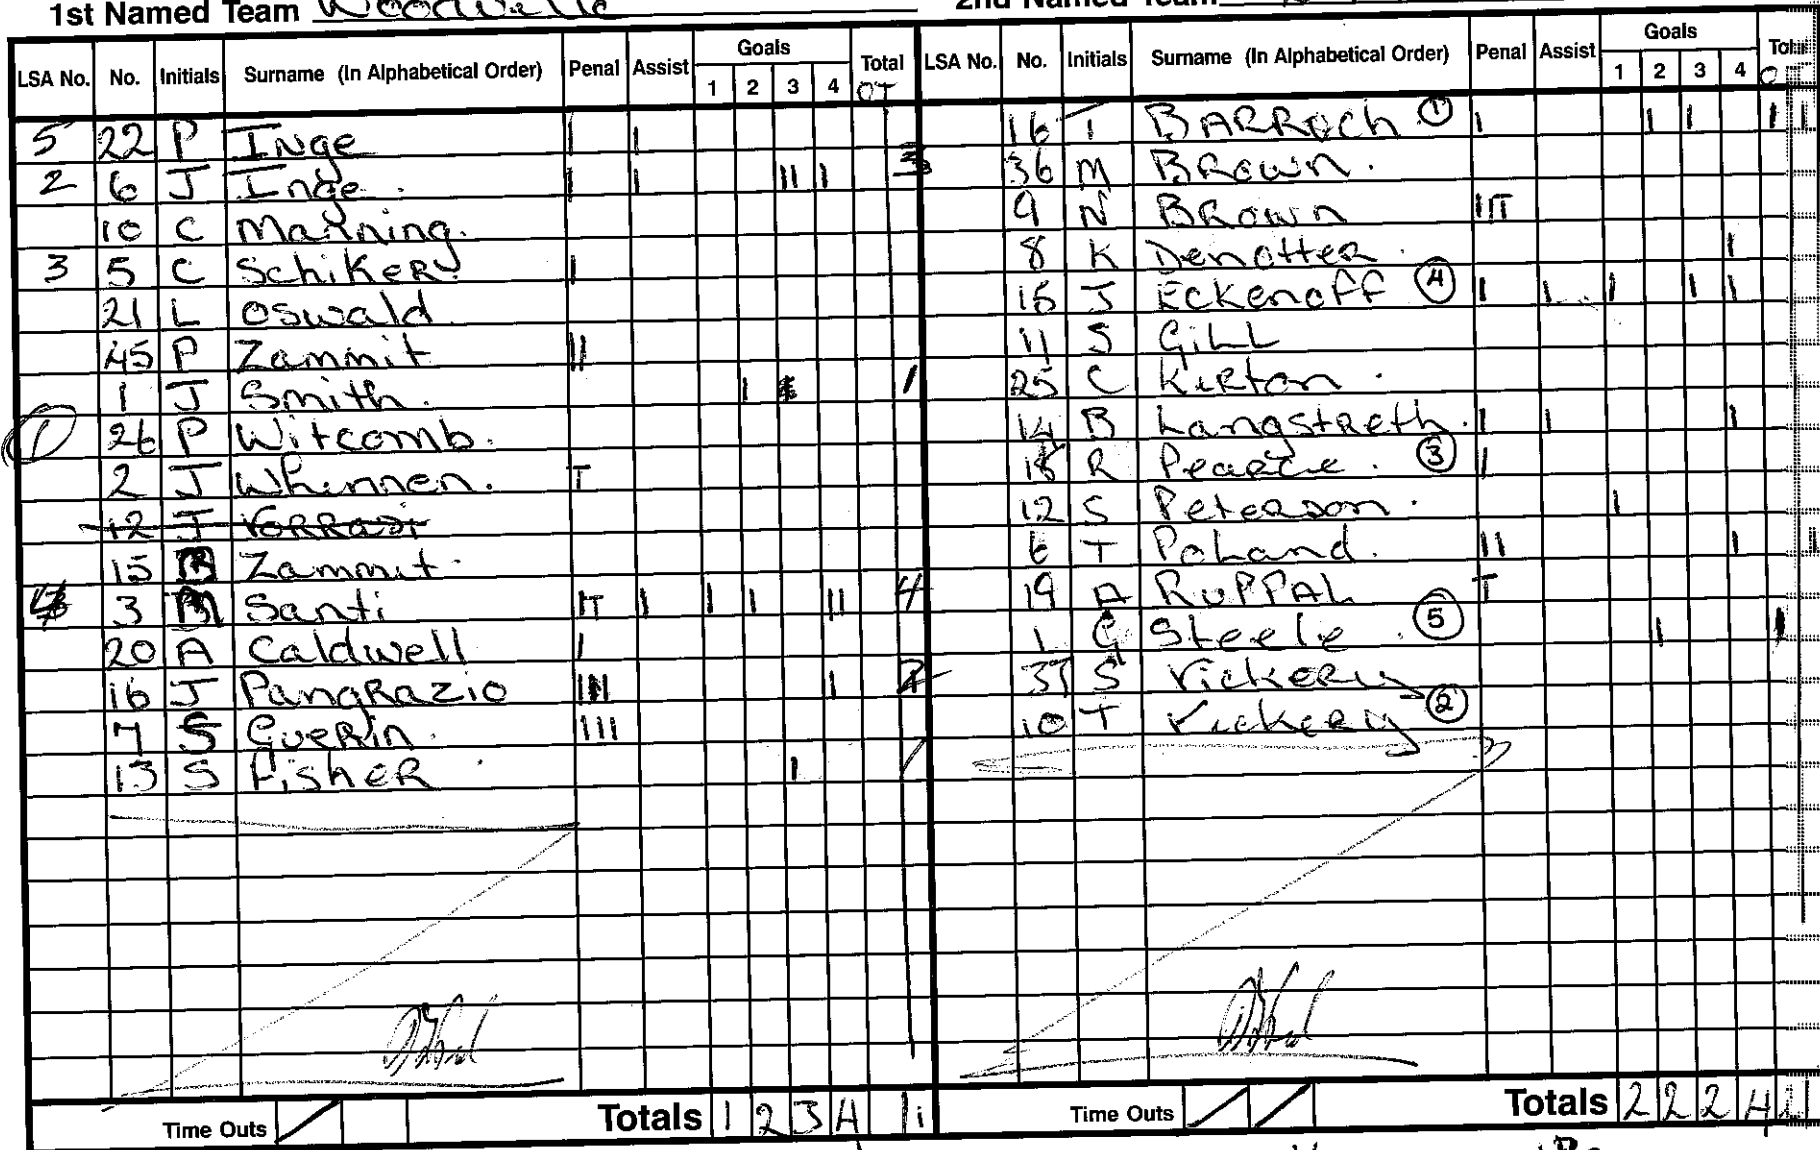 1st Named Team Woodville
2nd Named Team
LSA No. No. Initials Surname (In Alphabetical Order) Penal Assist Goals 1 2 3 4 Total OT
5 22 P Inge I I
2 6 J Inge. I I II I 3
10 C Manning.
3 5 C Schiker I
21 L Oswald
45 P Zammit II
1 J Smith. I 1
1 26 P Witcomb.
2 J Whinnen. T
12 J
15 Zammit.
3 M Santi IT I I I II 4
20 A Caldwell I
16 J Pangrazio III I
7 S Guerin. III
13 S Fisher I
Time Outs / Totals 1 2 3 4
LSA No. No. Initials Surname (In Alphabetical Order) Penal Assist Goals 1 2 3 4
16 T BARRoch 1 I I I
36 M Brown.
9 N Brown IIT
8 K Denotter. I
15 J Eckenoff 4 I I I I I
11 S GiLL
25 C Kirton.
14 B Langstreth. I I I
18 R Pearce. 3 I
12 S Peterson. I
6 T Poland. II I
19 A RUPPAL T
1 G Steele. 5 I
37 S Vickery
10 T Vickery 2
Time Outs / / Totals 2 2 2 4